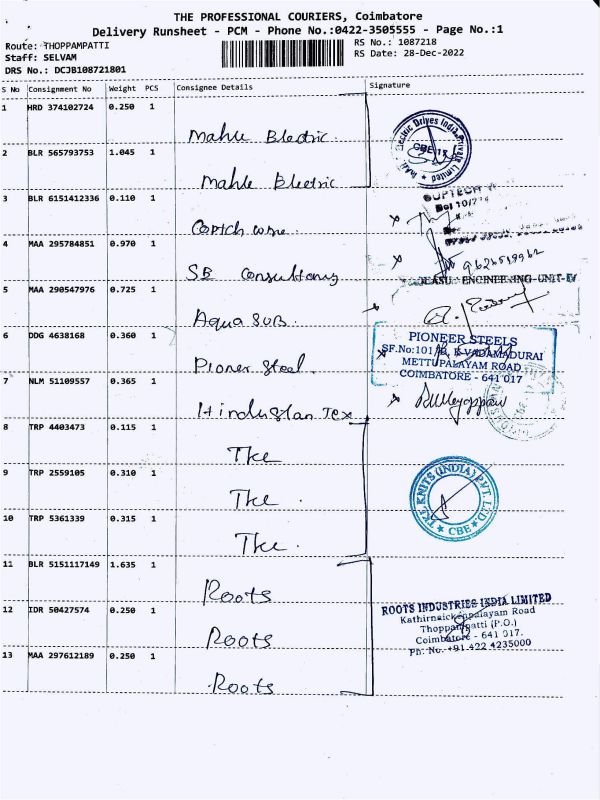 THE PROFESSIONAL COURIERS, Coimbatore
Delivery Runsheet - PCM - Phone No.:0422-3505555 - Page No.:1
Route: THOPPAMPATTI
Staff: SELVAM
DRS No.: DCJB108721801
RS No.: 1087218
RS Date: 28-Dec-2022
S No Consignment No Weight PCS Consignee Details Signature
1 HRD 374102724 0.250 1 Mahle Electric.
2 BLR 565793753 1.045 1 Mahle Electric
3 BLR 6151412336 0.110 1
4 MAA 295784851 0.970 1 SB Consultany
5 MAA 290547976 0.725 1 Aqua SUB.
6 DDG 4638168 0.360 1 Pioner Steel.
7 NLM 51109557 0.365 1 Hindustan Tex
8 TRP 4403473 0.115 1 TKL
9 TRP 2559105 0.310 1 TKL.
10 TRP 5361339 0.315 1 TKL.
11 BLR 5151117149 1.635 1 Roots
12 IDR 50427574 0.250 1 Roots
13 MAA 297612189 0.250 1 Roots
Electric Drives India Private Limited
ENGINEERING-UNIT-IV
PIONEER STEELS
VADAMADURAI
METTUPALAYAM ROAD
COIMBATORE - 641 017
TKL KNITS (INDIA) PVT. LTD
★ CBE ★
ROOTS INDUSTRIES INDIA LIMITED
Kathirnaickenpalayam Road
Thoppampatti (P.O.)
Coimbatore - 641 017.
Ph: No. +91-422 4235000